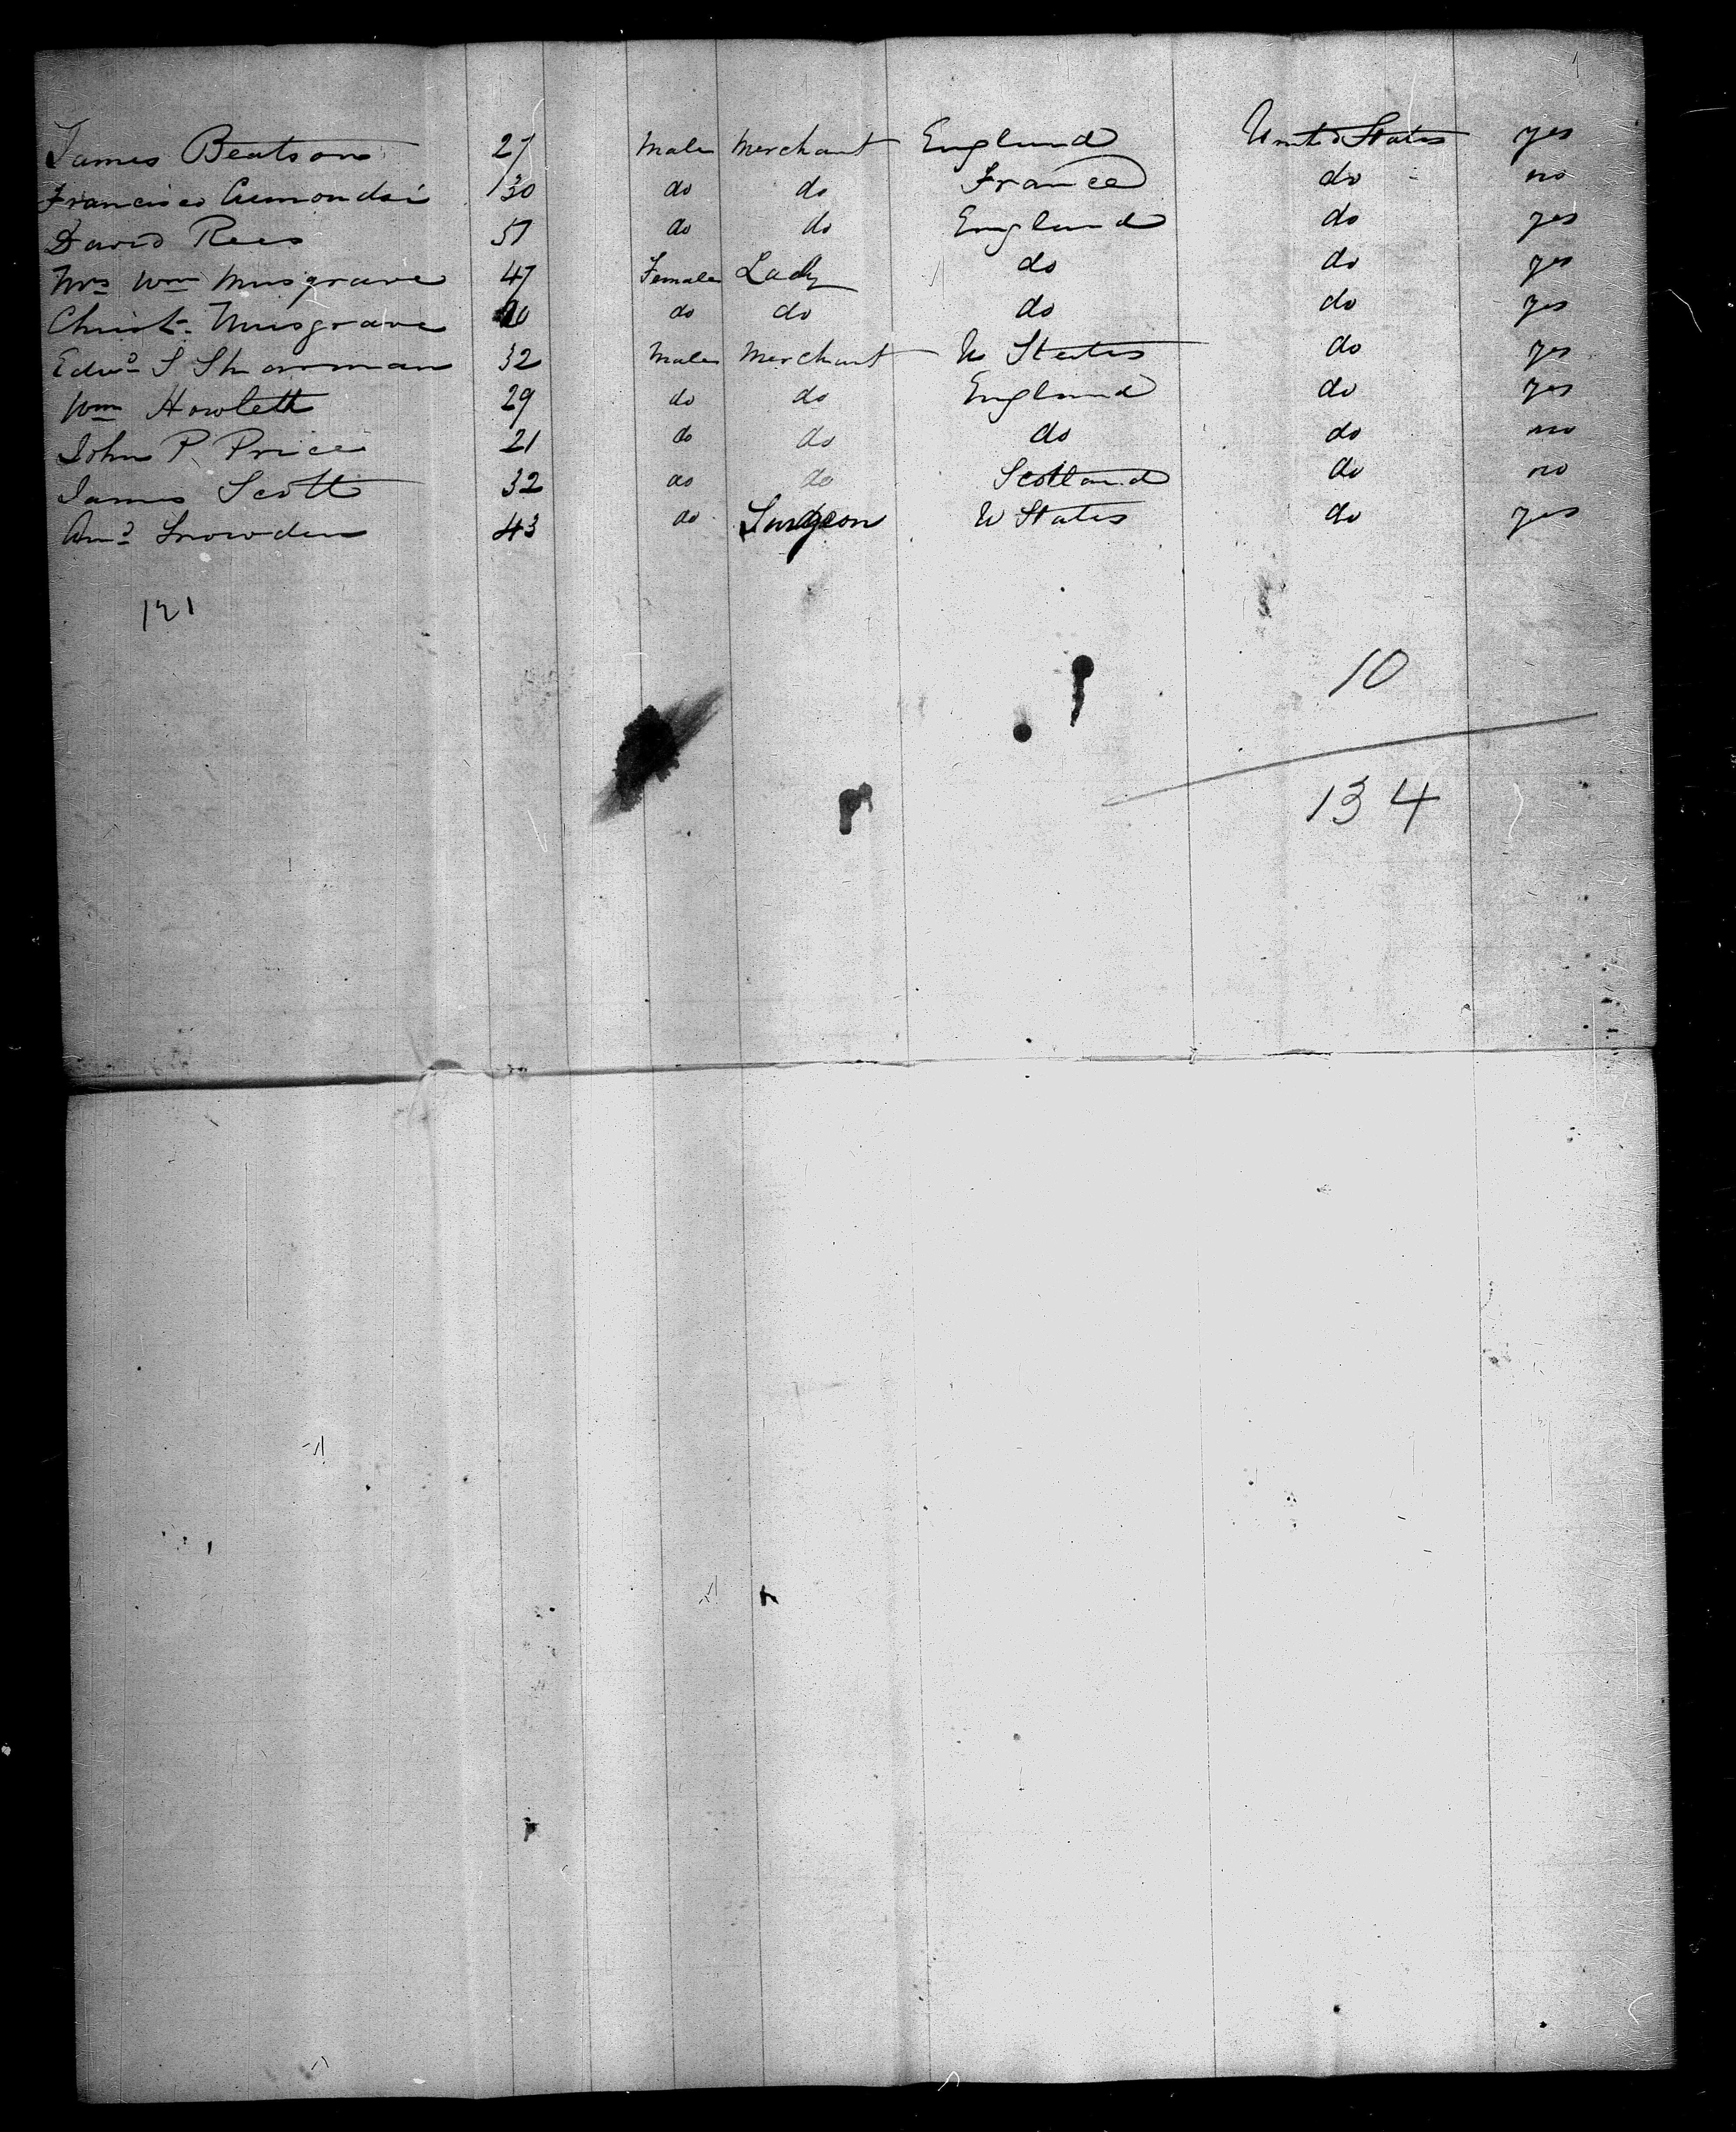 James Beatson 27 Male Merchant England United States yes
Francisco 30 do do France do no
David Rees do do England do yes
Mrs Wm Musgrave 47 Female Lady do do yes
Christ. Musgrave do do do do yes
Edwd S Sharman 32 Male Merchant U States do yes
Wm Howlett 29 do do England do yes
John P. Price 21 do do do do no
James Scott 32 do do Scotland do no
Snowden 43 do Surgeon U States do yes
121
10
134